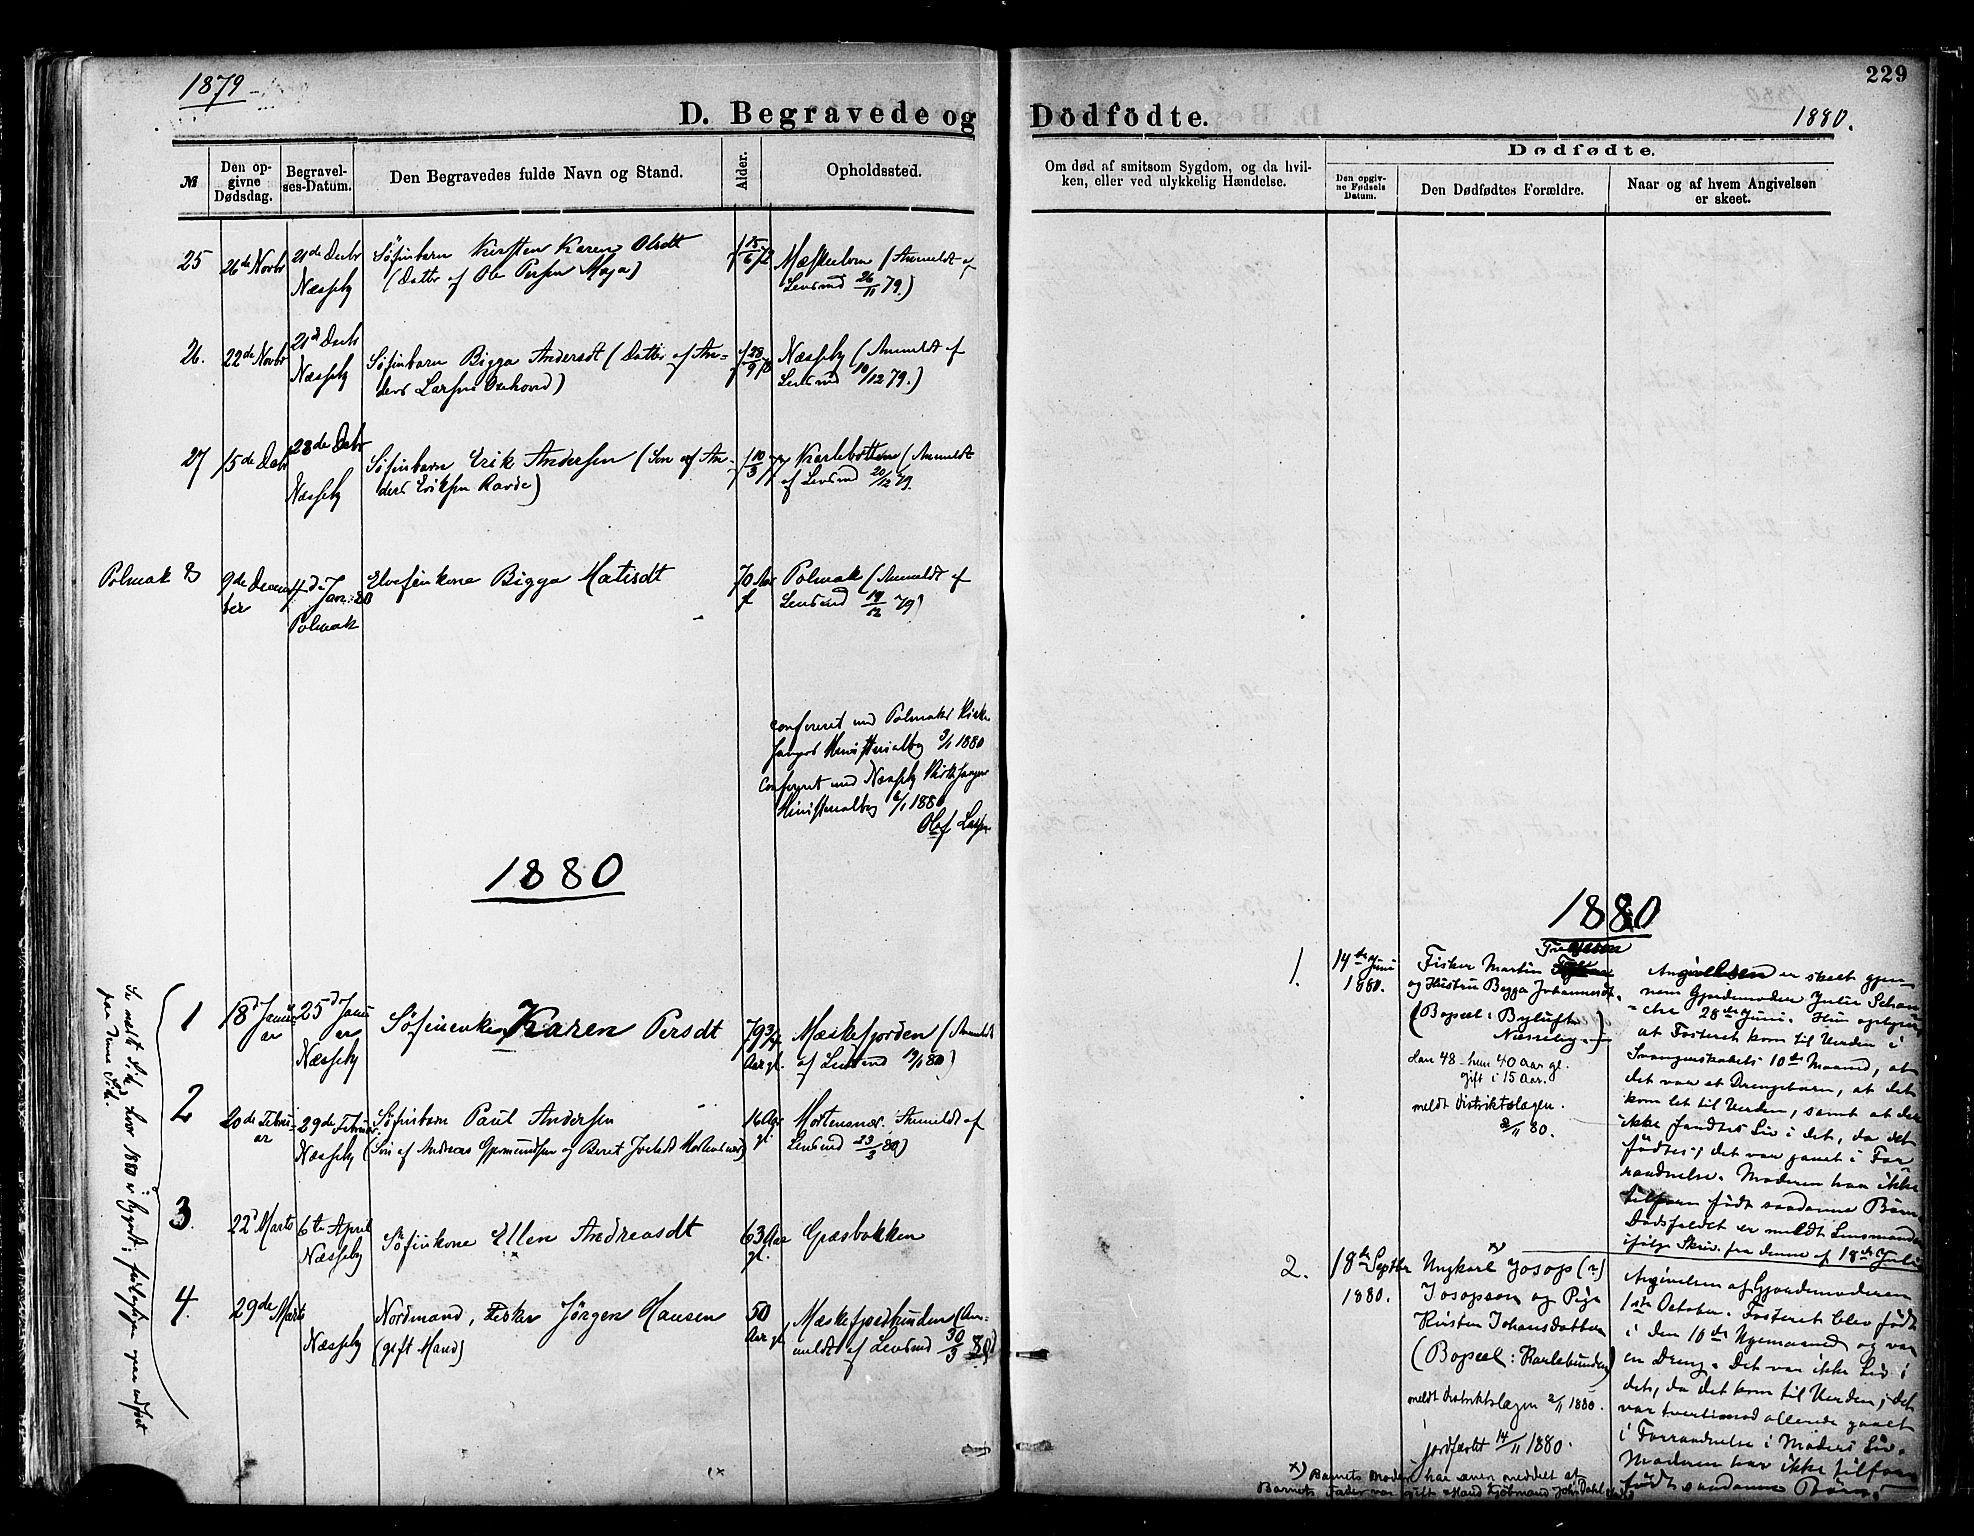 1879
D. Begravede og
№
Den op-
givne
Dødsdag.
Begravel-
ses-Datum.
Den Begravedes fulde Navn og Stand.
Alder.
Opholdssted.
25
26de Novbr
21de Decbr
Næsseby
Søfinbarn Kirsten Karen Olsdt
(Datter af Ole Persen Maja)
f 15/6 72
Mæskelven (Anmeldt af
Lensmd 26/11 79.)
26.
22de Novbr
21de Decbr
Næsseby
Søfinbarn Bigga Andersdt (Datter af An-
ders Larsen
f 28/9 78
Næsseby (Anmeldt af
Lensmd 10/12 79.)
27
15de Decbr
28de Decbr
Næsseby
Søfinbarn Erik Andersen (Søn af An-
ders Eriksen Ravde)
f 10/3 77
Karlebotten (Anmeldt
af Lensmd 20/12 79.
Polmak 8
9de Decem-
ber
4de Jan: 80
Polmak
Elvefinkone Bigga Matisdt
70 Aar
Polmak (Anmeldt af
Lensmd 19/12 79)
confereret med Polmaks Kirke-
sangers Ministerialbog 3/1 1880
Confereret med Næsseby Kirkesangers
Ministerialbog 6/1 1880
Olaf
1880
1
18d Janu-
ar
25d Janu-
ar
Næsseby
Søfinenke Karen Persdt
79 3/4
Aar gl.
Mæskefjorden (Anmeldt
af Lensmd 19/1 80)
2
20de Febru-
ar
29de Februar
Næsseby
Søfinbarn Paul Andersen
(Søn af Andreas Gjermundsen og Beret
16
gl.
Mortensnæs. Anmeldt af
Lensmd 23/2 80)
3.
22d Marts
6te April
Næsseby
Søfinkone Ellen Andreasdt
63 Aar
gl.
Græsbakken
4.
29de Marts
Næsseby
Nordmand, Fisker Jørgen Hansen
(gift Mand)
50
Aar gl.
Mæskefjordbunden (An-
meldt af Lensmd 30/3 80)
Se næst Side, hvor 1880 er begyndt; feilagtigen opført
paa denne Side.
229
Dödfödte.
1880.
Om død af smitsom Sygdom, og da hvil-
ken, eller ved ulykkelig Hændelse.
Dødfødte.
Den opgiv-
ne Fødsels
Datum.
Den Dødfødtes Forældre.
Naar og af hvem Angivelsen
er skeet.
1880
1.
14de Juni
1880.
Fisker Martin
og Hustru Bigga Johannesdt.
(Bopæl: Byluft
Næsseby.)
han 48 - hun 40 Aar gl.
gift i 15 Aar.
meldt Distriktslægen.
2/11 80.
Angivelsen er skeet gjen-
nem Gjordemoder Julie Schan-
che 28de Juni. Hun oplyser
at Fosteret kom til Verden i
Svangerskabets 10de Maaned, at
det var et Drengebarn, at det
kom let til Verden, samt at der
ikke fandtes Liv i det, da det
fødtes; det var gaaet i For-
raadnelse. Moderen har ikke
tilforn født saadanne Børn.
Dødsfaldet er meldt Lensmanden
ifølge Skriv. fra denne af 18de Juli
2.
18de Septbr
1880.
Ungkarl x) Josop (?)
Josopsen og Pige
Kirsten Johansdatter
(Bopæl: Karlebunden)
meldt Distriktslægen 2/11 1880.
jordfæstet 14/11 1880.
Angivelsen af Gjordemoderen
1ste October. Fosteret blev født
i den 10de Ugemaaned og var
en Dreng. Det var ikke Liv i
det, da det kom til Verden; det
var tvertimod allerede gaaet
i Forraadnelse i Moders Liv.
Moderen har ikke tilforn
født saadanne Børn.
x) Barnets Moder har senere meddelt at
Barnets Fader var gift Mand Kjøbmand John Dahl